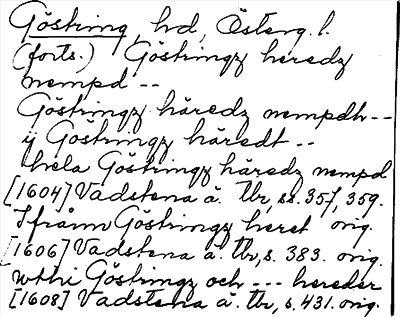 Göstring, hd, Österg. l.
(forts.) Göstringz heredz
nempd --
Göstringz häredz nempdh --
ij Gostringz häredt --
hela Göstringz häredz nempd
[1604] Vadstena ä. Tbr, ss. 357, 359.
Ifrånn Göstringz heret orig.
[1606] Vadstena ä. Tbr, s. 383. orig.
wthi Göstringz och --- hereder
[1608] Vadstena ä. Tbr, s. 431. orig.